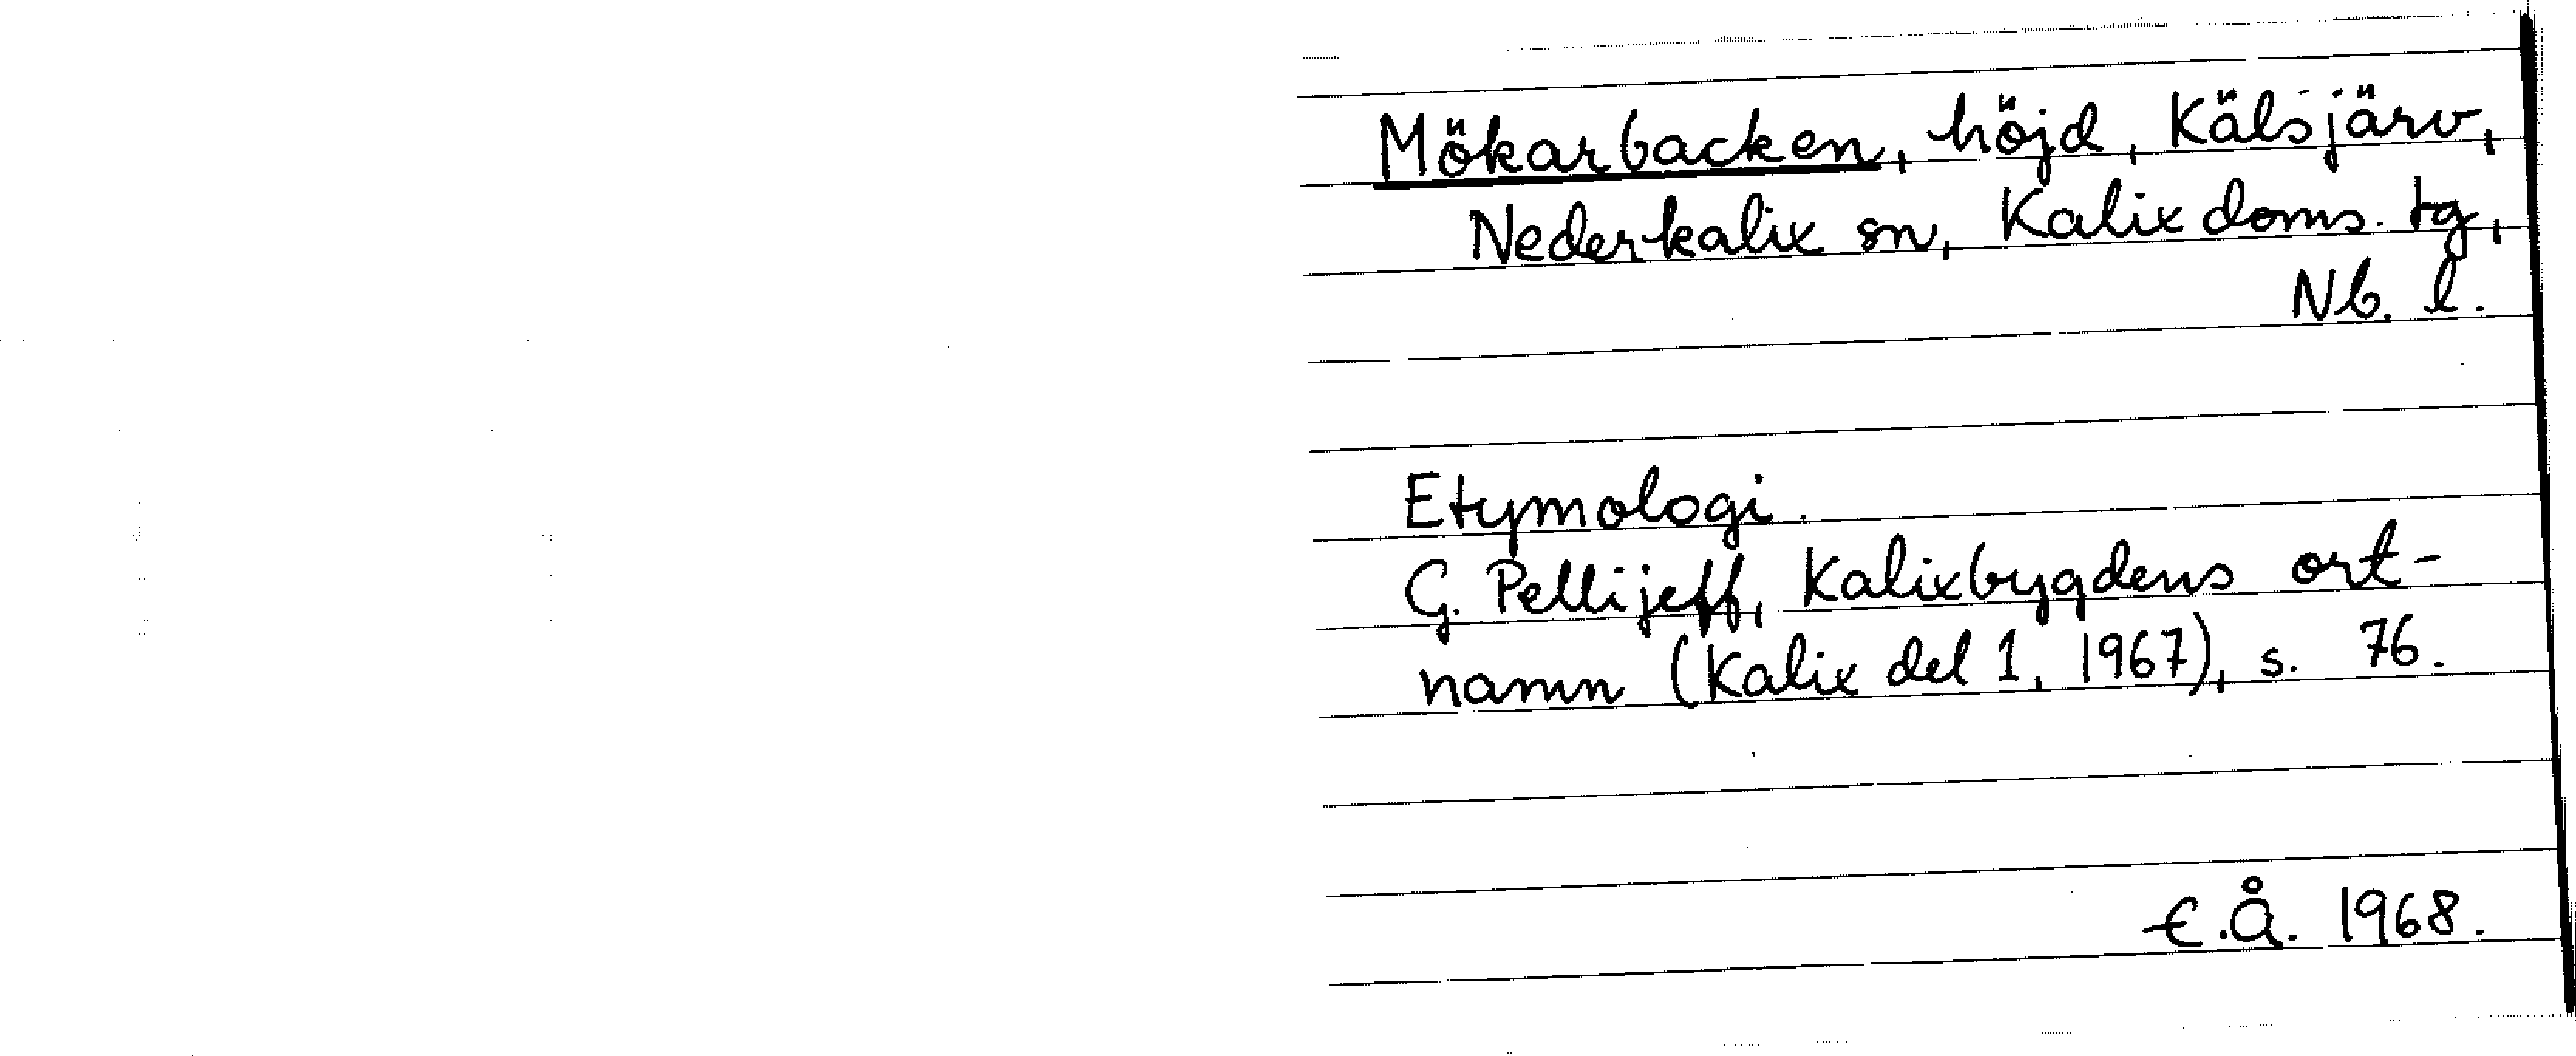 Mökarbacken, höjd, Kälsjärv,
Nederkalix sn, Kalix doms. tg,
Nb. l.
Etymologi.
G. Pellijeff, Kalixbygdens ort-
namn (Kalix del 1, 1967), s. 76.
E.Å. 1968.